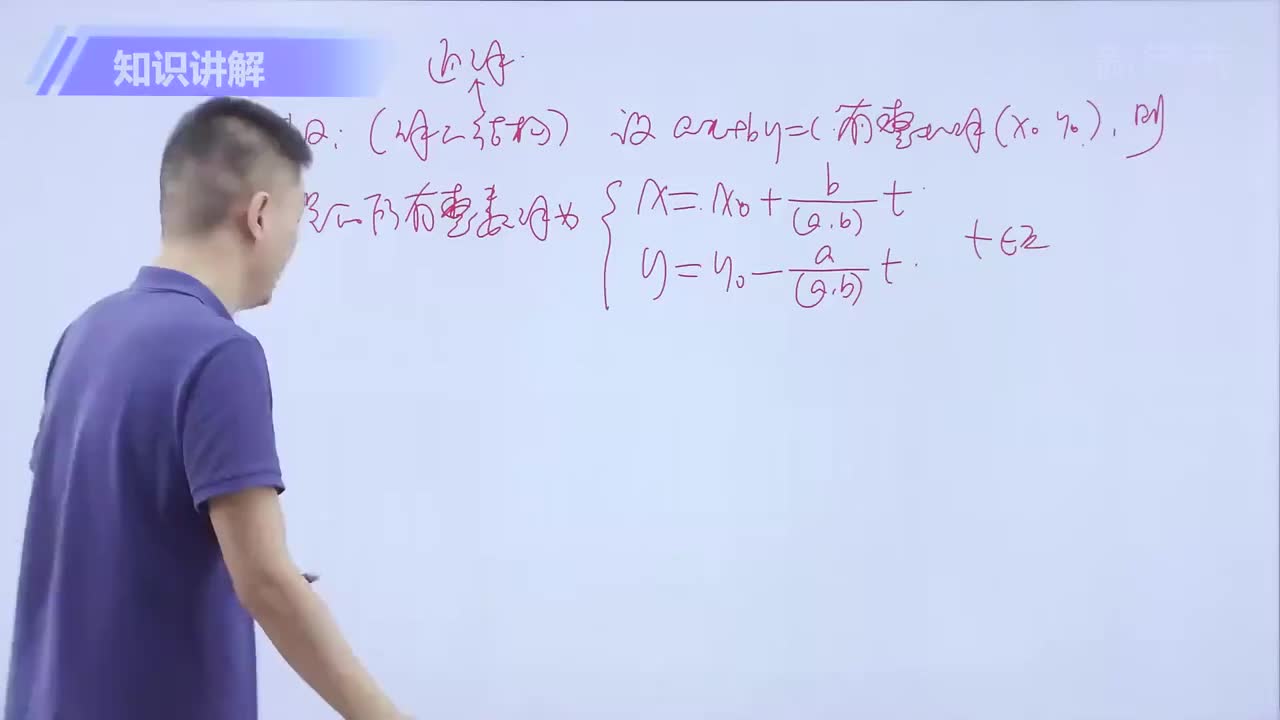 知识讲解
通解
2:（解的结构） 设 ax+by=c 有整数解(x₀ y₀). 则
的所有整数解为 { x = x₀ + b/(a.b) t
y = y₀ − a/(a.b) t. t∈Z